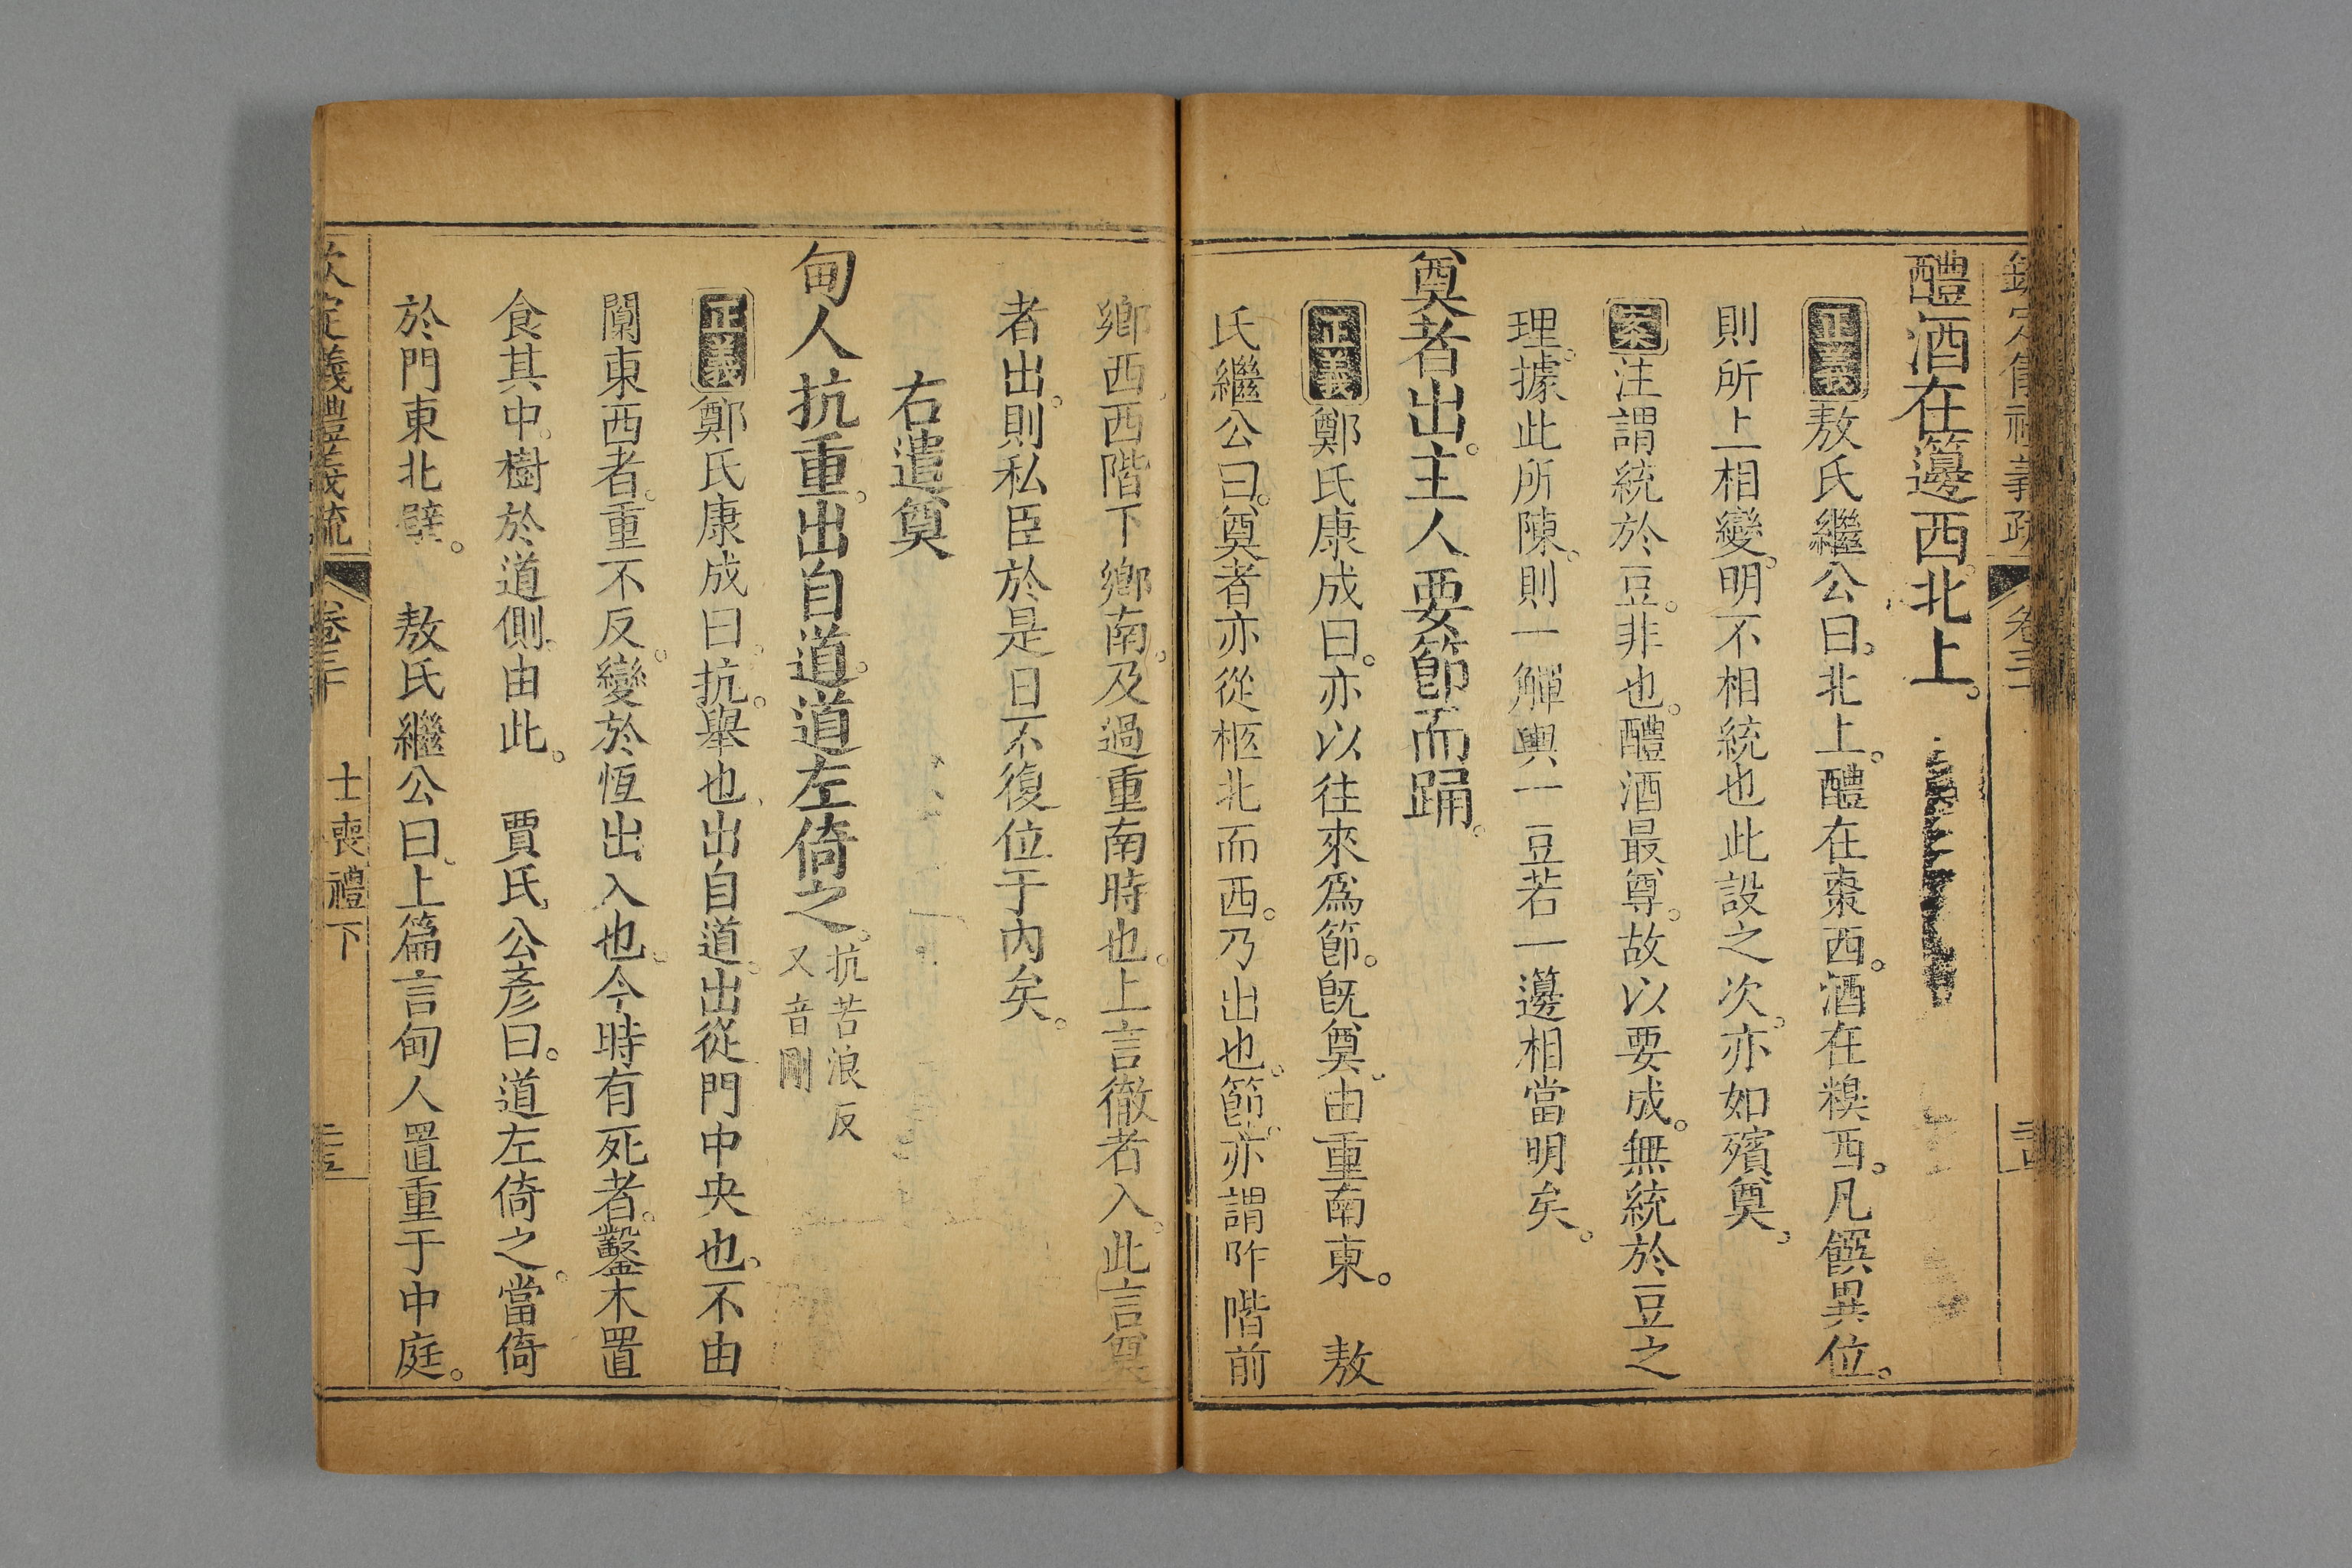 醴酒在籩西。北上。
正義敖氏繼公曰。北上。醴在棗西。酒在糗西。凡饌異位。
則所上相變。明不相統也此設之次。亦如殯奠。
案注謂統於豆。非也。醴酒最尊。故以要成。無統於豆之
理。據此所陳。則一觶與一豆若一籩相當明矣。
奠者出。主人要節而踊。
正義鄭氏康成曰。亦以往來爲節。旣奠。由重南東。 敖
氏繼公曰。奠者亦從柩北而西。乃出也。節。亦謂阼階前
鄉西西階下鄉南。及過重南時也。上言徹者入。此言奠
者出。則私臣於是日不復位于内矣。
右遣奠
甸人抗重。出自道。道左倚之。抗苦浪反
又音剛
正義鄭氏康成曰。抗。舉也。出自道。出從門中央也。不由
闑東西者。重不反。變於恆出入也。今時有死者。鑿木置
食其中。樹於道側。由此。 賈氏公彥曰。道左倚之。當倚
於門東北壁。 敖氏繼公曰。上篇言甸人置重于中庭。
欽定儀禮義疏 卷三十 士喪禮下